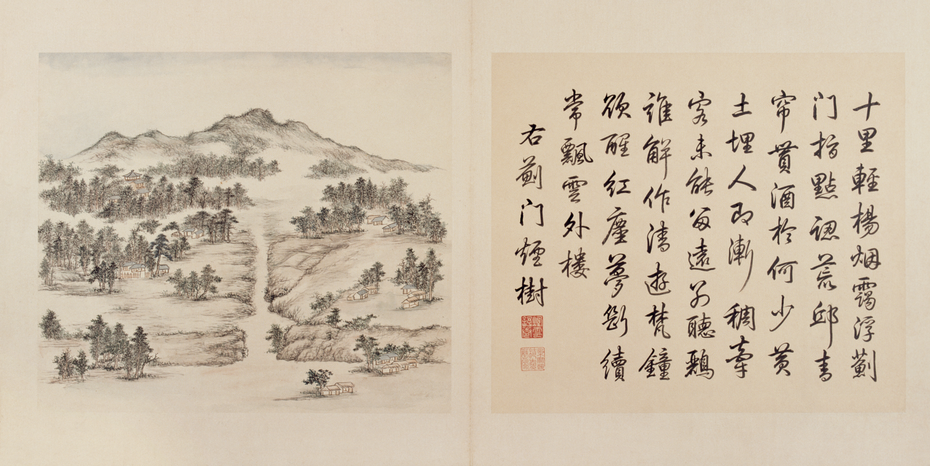 十里輕楊烟靄浮薊
门指點認荒邱青
帘貰酒於何少黄
土埋人即漸稠牽
客未能留遠别聽鸝
誰解作清遊梵鐘
欲醒紅塵夢斷續
常飄雲外楼
右薊门煙樹